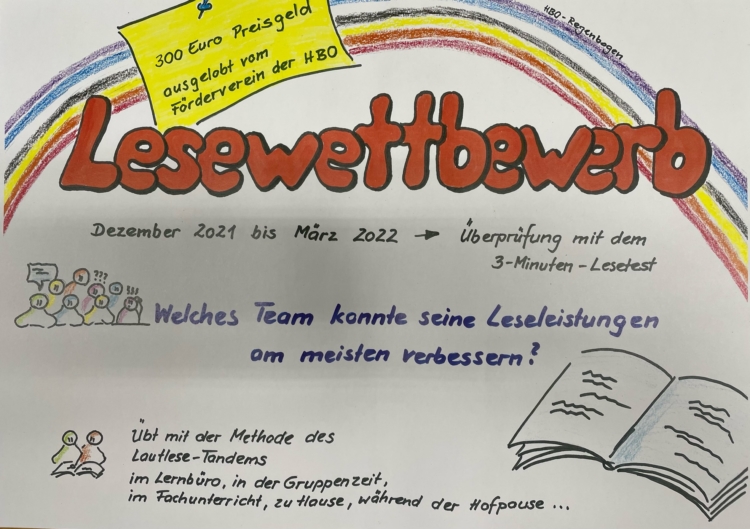 300 Euro Preisgeld
ausgelobt vom
Förderverein der HBO
HBO-Regenbogen
Lesewettbewerb
Dezember 2021 bis März 2022 → Überprüfung mit dem
3-Minuten-Lesetest
???
Welches Team konnte seine Leseleistungen
am meisten verbessern?
Übt mit der Methode des
Lautlese-Tandems
im Lernbüro, in der Gruppenzeit,
im Fachunterricht, zu Hause, während der Hofpause ...